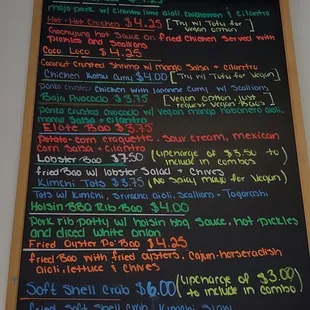 mojo pork w/ cilantro lime aioli, chicharron & cilantro
Hot-Hot Chicken $4.25 [Try w/ Tofu for
vegan option]
Gochujang Hot Sauce on fried chicken Served with
pickles and Scallions
Coco Loco $4.25
Coconut Crusted Shrimp w/ mango Salsa + cilantro
Chicken Katsu Curry $4.00 [Try w/ Tofu for Vegan]
Panko Crusted chicken with Japanese Curry w/ Scallions
Baja Avocado $3.75 [Vegan option, just
request Vegan Baos]
Panko Crusted avocado w/ vegan mango habanero aioli,
mango Salsa + cilantro
Elote Bao $3.75
Potato-corn croquette, Sour cream, mexican
Corn Salsa, cilantro
Lobster Bao $7.50 (upcharge of $3.50 to
include in combos)
fried Bao w/ lobster Salad + Chives
Kimchi Tots $3.75 (No Spicy mayo for Vegan)
Tots w/ kimchi, Sriracha aioli, Scallions + Togarashi
Hoisin BBQ Rib Bao $4.00
Pork rib patty w/ hoisin bbq Sauce, hot pickles
and diced white onion
Fried Oyster Po'Bao $4.25
fried Bao with fried oysters, Cajun-horseradish
aioli, lettuce & chives
Soft Shell Crab $6.00 (upcharge of $3.00
to include in combo)
Fried Soft Shell Crab, Kimchi Slaw